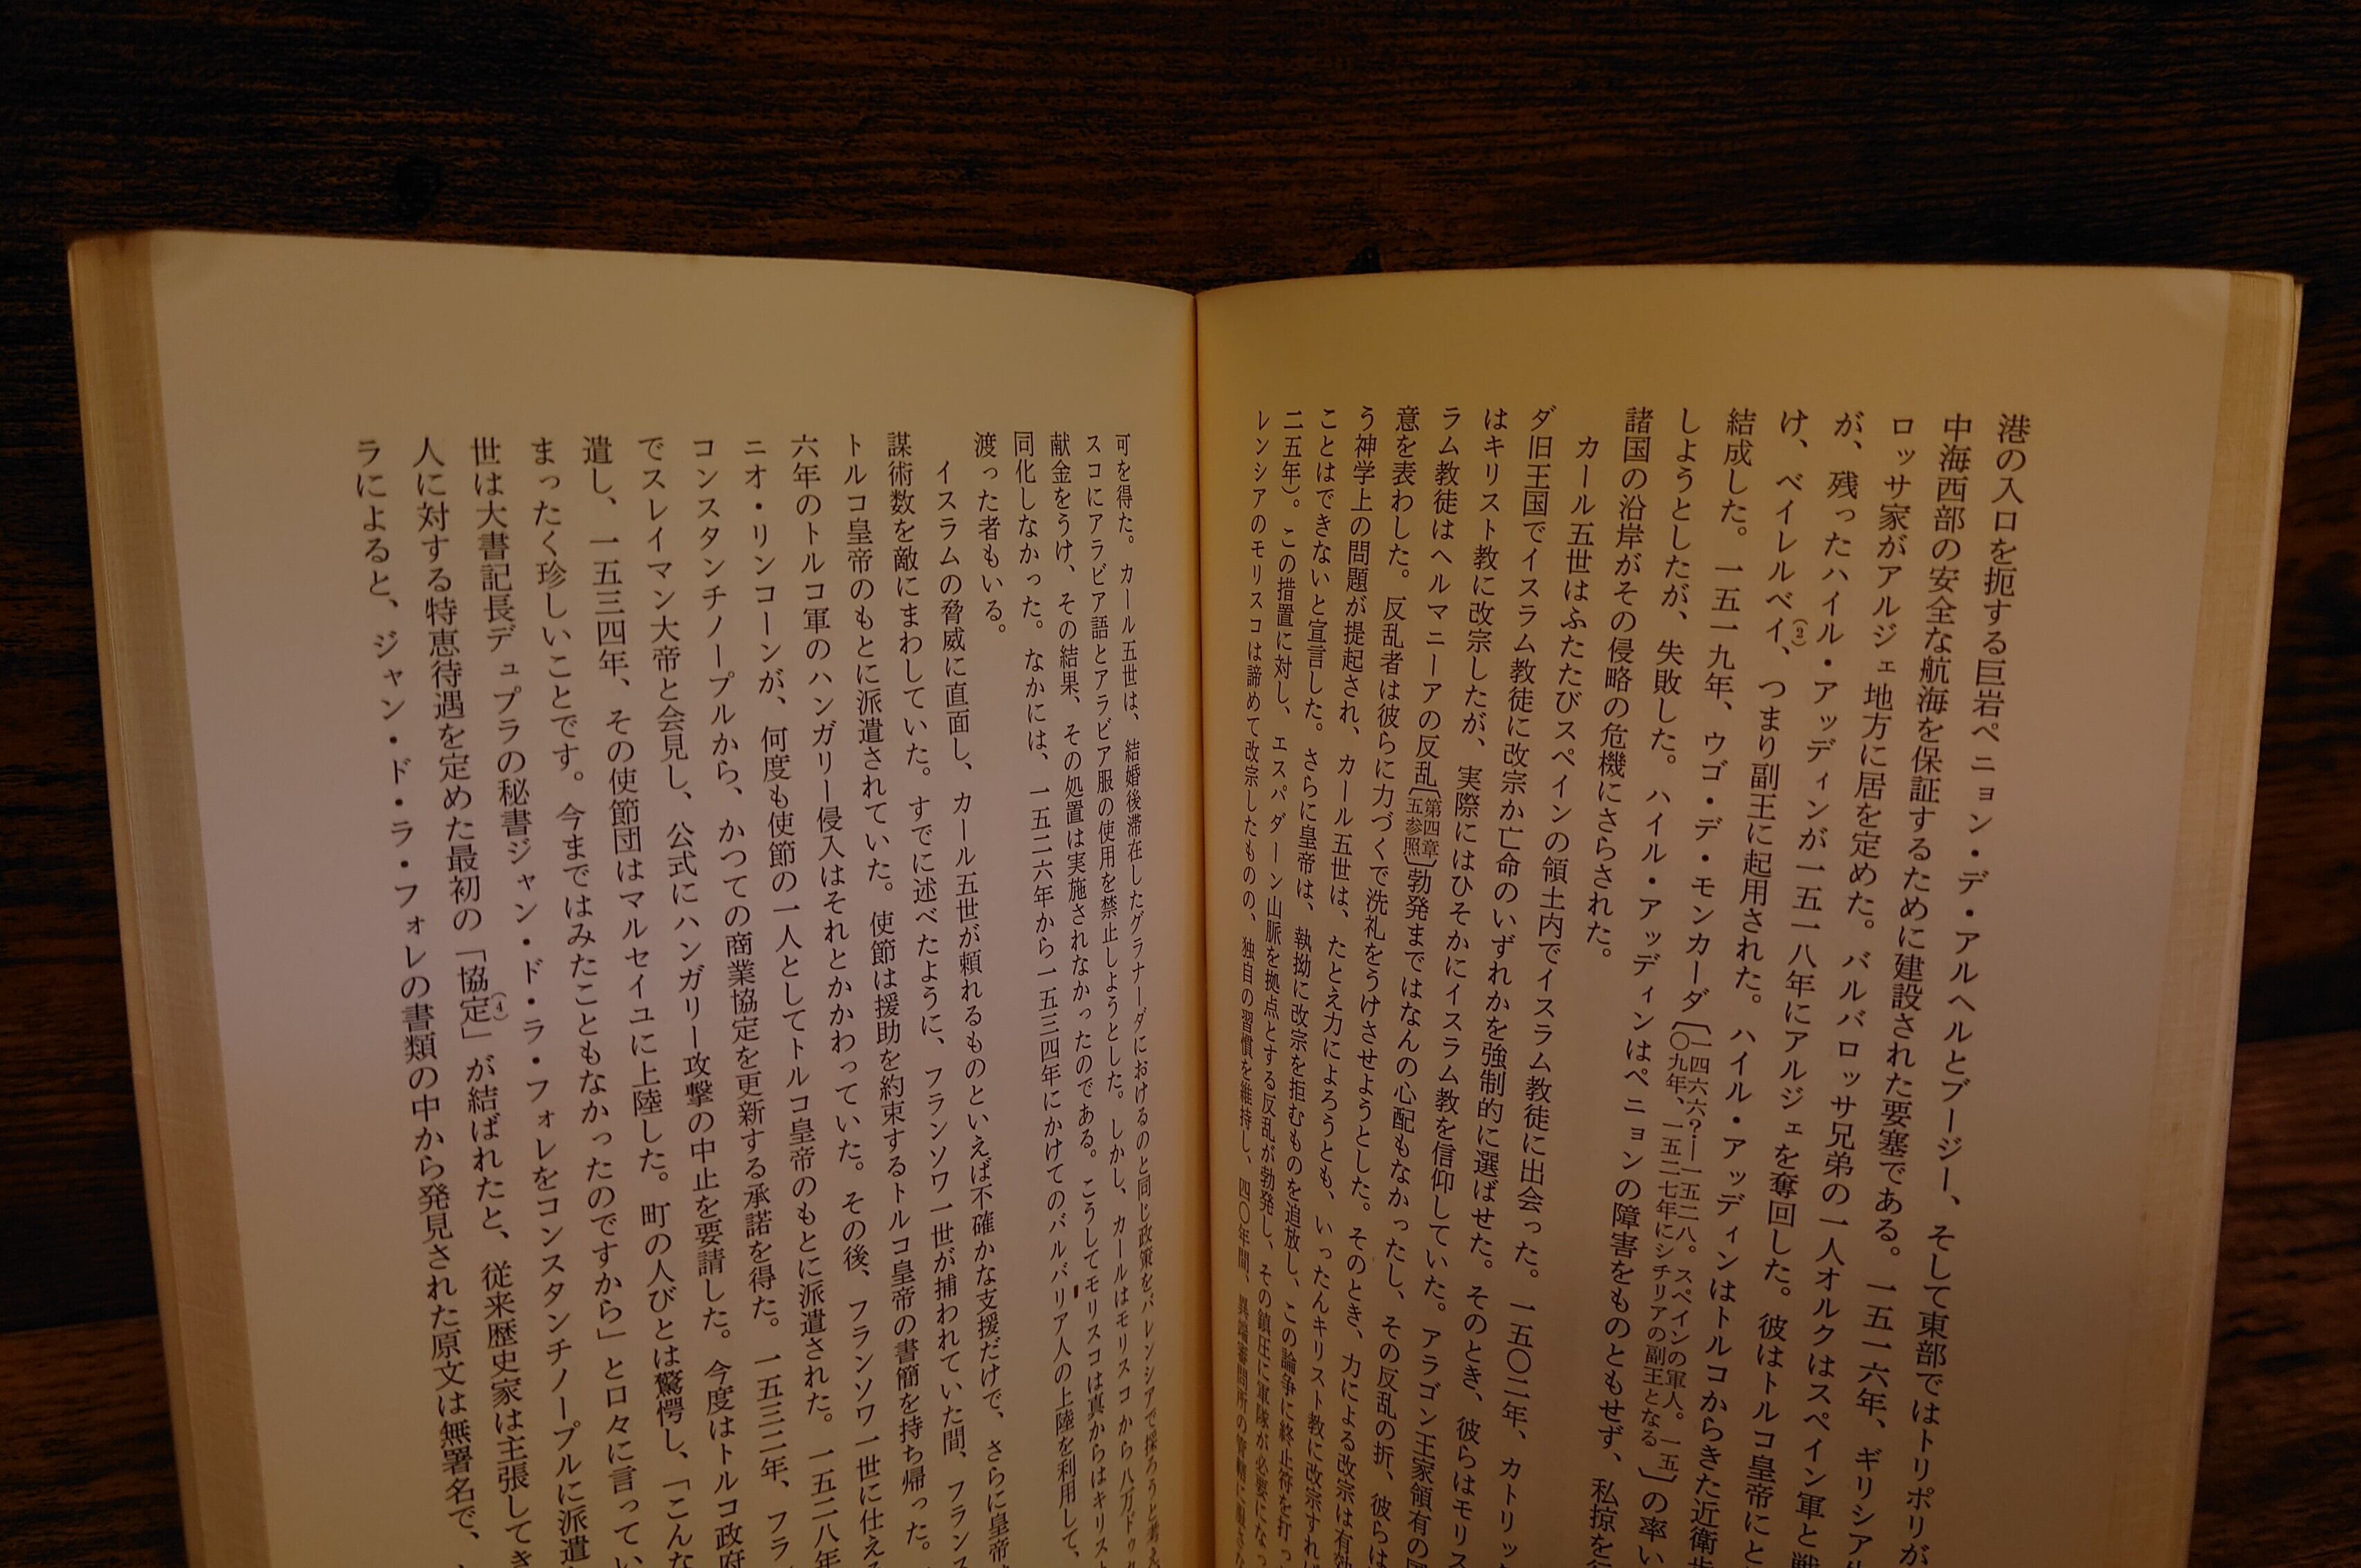 港の入口を扼する巨岩ペニョン・デ・アルヘルとブージー、そして東部ではトリポリが
中海西部の安全な航海を保証するために建設された要塞である。一五一六年、ギリシア
ロッサ家がアルジェ地方に居を定めた。バルバロッサ兄弟の一人オルクはスペイン軍と戦
が、残ったハイル・アッディンが一五一八年にアルジェを奪回した。彼はトルコ皇帝にと
け、ベイレルベイ(3)、つまり副王に起用された。ハイル・アッディンはトルコからきた近衛歩
結成した。一五一九年、ウゴ・デ・モンカーダ〔一四六六?―一五二八。スペインの軍人。一五〇九年、一五二七年にシチリアの副王となる〕の率い
しようとしたが、失敗した。ハイル・アッディンはペニョンの障害をものともせず、私掠を
諸国の沿岸がその侵略の危機にさらされた。
カール五世はふたたびスペインの領土内でイスラム教徒に出会った。一五〇二年、カトリッ
ダ旧王国でイスラム教徒に改宗か亡命のいずれかを強制的に選ばせた。そのとき、彼らはモリス
はキリスト教に改宗したが、実際にはひそかにイスラム教を信仰していた。アラゴン王家領有の
ラム教徒はヘルマニーアの反乱〔第四章五参照〕勃発まではなんの心配もなかったし、その反乱の折、彼らは
意を表わした。反乱者は彼らに力づくで洗礼をうけさせようとした。そのとき、力による改宗は有効
う神学上の問題が提起され、カール五世は、たとえ力によろうとも、いったんキリスト教に改宗すれば
ことはできないと宣言した。さらに皇帝は、執拗に改宗を拒むものを追放し、この論争に終止符を打っ
二五年)。この措置に対し、エスパダーン山脈を拠点とする反乱が勃発し、その鎮圧に軍隊が必要になっ
レンシアのモリスコは諦めて改宗したものの、独自の習慣を維持し、四〇年間、異端審問所の管轄に服さな
可を得た。カール五世は、結婚後滞在したグラナーダにおけるのと同じ政策をバレンシアで採ろうと考え
スコにアラビア語とアラビア服の使用を禁止しようとした。しかし、カールはモリスコから八万ドゥカ
献金をうけ、その結果、その処置は実施されなかったのである。こうしてモリスコは真からはキリスト
同化しなかった。なかには、一五二六年から一五三四年にかけてのバルバリア人の上陸を利用して、
渡った者もいる。
イスラムの脅威に直面し、カール五世が頼れるものといえば不確かな支援だけで、さらに皇帝
謀術数を敵にまわしていた。すでに述べたように、フランソワ一世が捕われていた間、フランス
トルコ皇帝のもとに派遣されていた。使節は援助を約束するトルコ皇帝の書簡を持ち帰った。
六年のトルコ軍のハンガリー侵入はそれとかかわっていた。その後、フランソワ一世に仕える
ニオ・リンコーンが、何度も使節の一人としてトルコ皇帝のもとに派遣された。一五二八年
コンスタンチノープルから、かつての商業協定を更新する承諾を得た。一五三二年、フラ
でスレイマン大帝と会見し、公式にハンガリー攻撃の中止を要請した。今度はトルコ政府
遣し、一五三四年、その使節団はマルセイユに上陸した。町の人びとは驚愕し、「こんな
まったく珍しいことです。今まではみたこともなかったのですから」と口々に言ってい
世は大書記長デュプラの秘書ジャン・ド・ラ・フォレをコンスタンチノープルに派遣
人に対する特恵待遇を定めた最初の「協定(4)」が結ばれたと、従来歴史家は主張してき
ラによると、ジャン・ド・ラ・フォレの書類の中から発見された原文は無署名で、